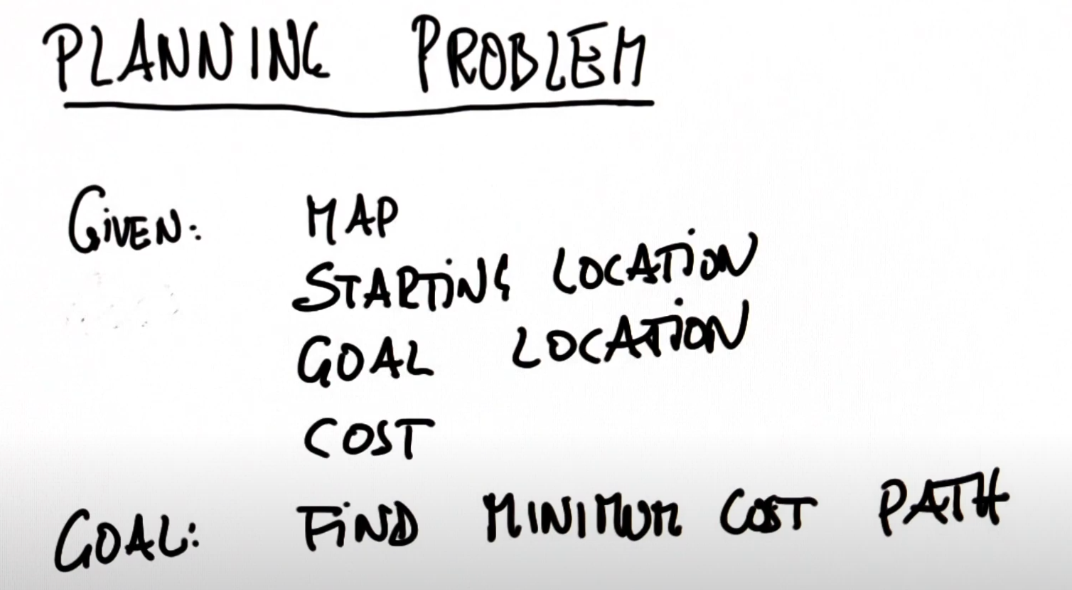 PLANNING PROBLEM
GIVEN: MAP
STARTING LOCATION
GOAL LOCATION
COST
GOAL: FIND MINIMUM COST PATH